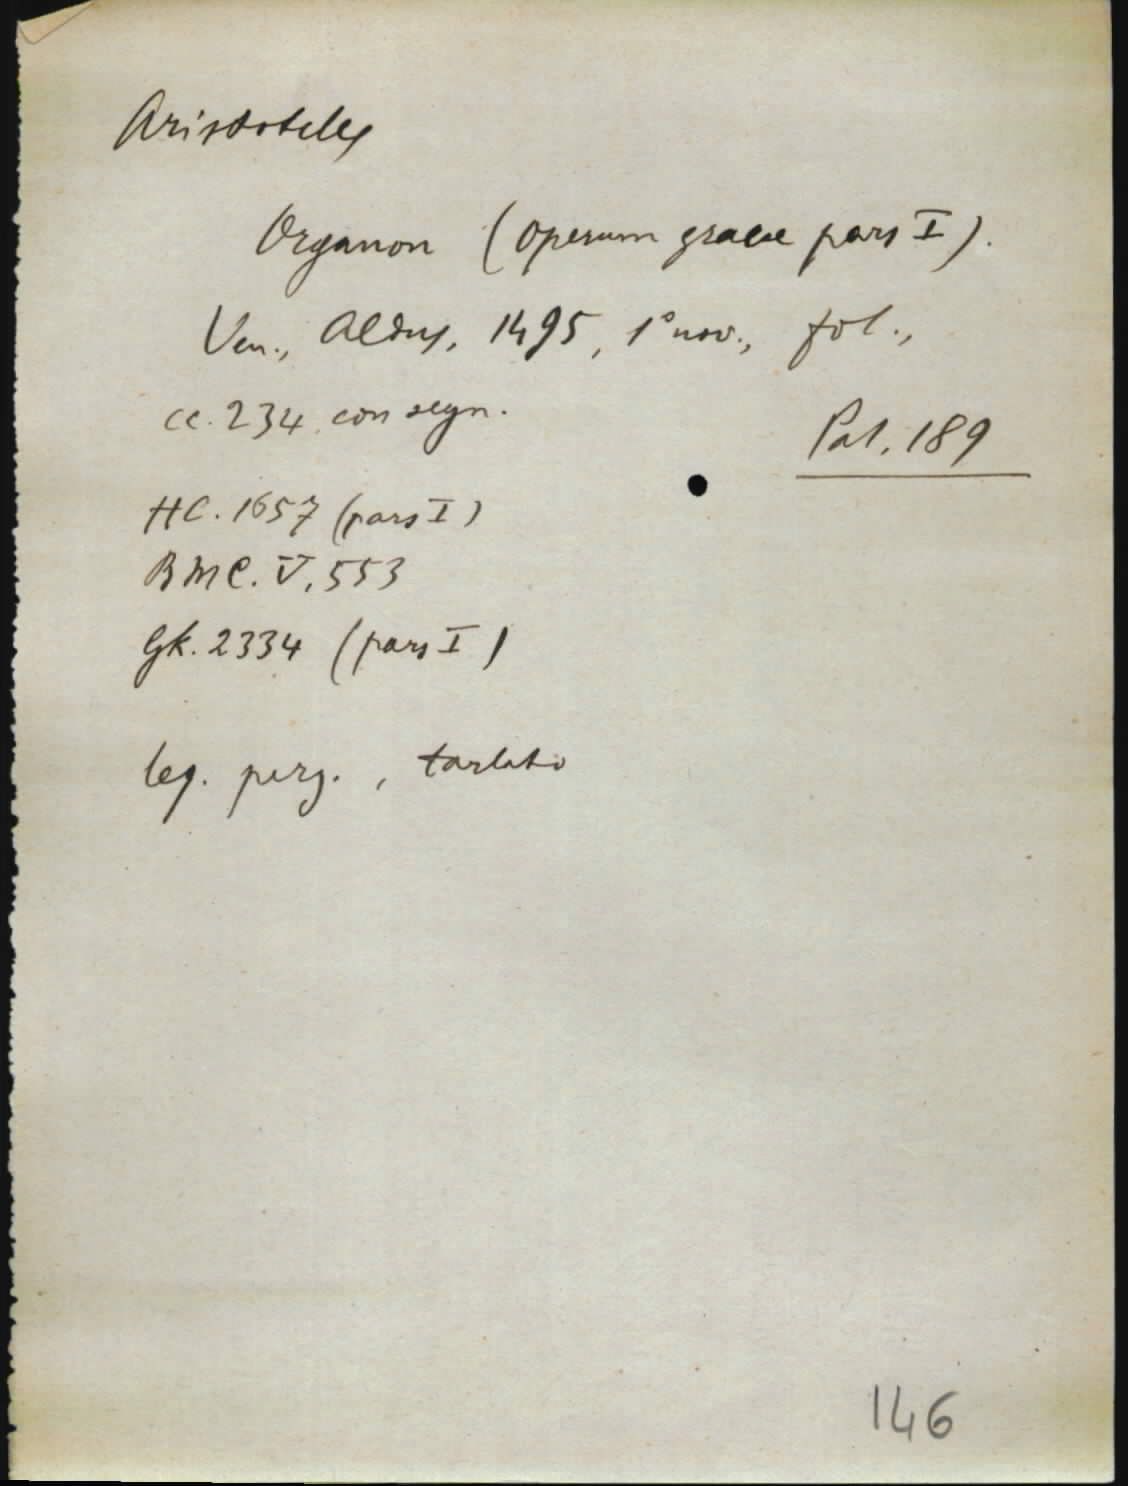 Aristoteles
Organon (Operum graece pars I).
Ven., Aldus, 1495, 1° nov., fol.,
cc. 234 con segn.
Pal. 189
HC. 1657 (pars I)
BMC. V, 553
Gk. 2334 (pars I)
leg. perg., tarlato
146